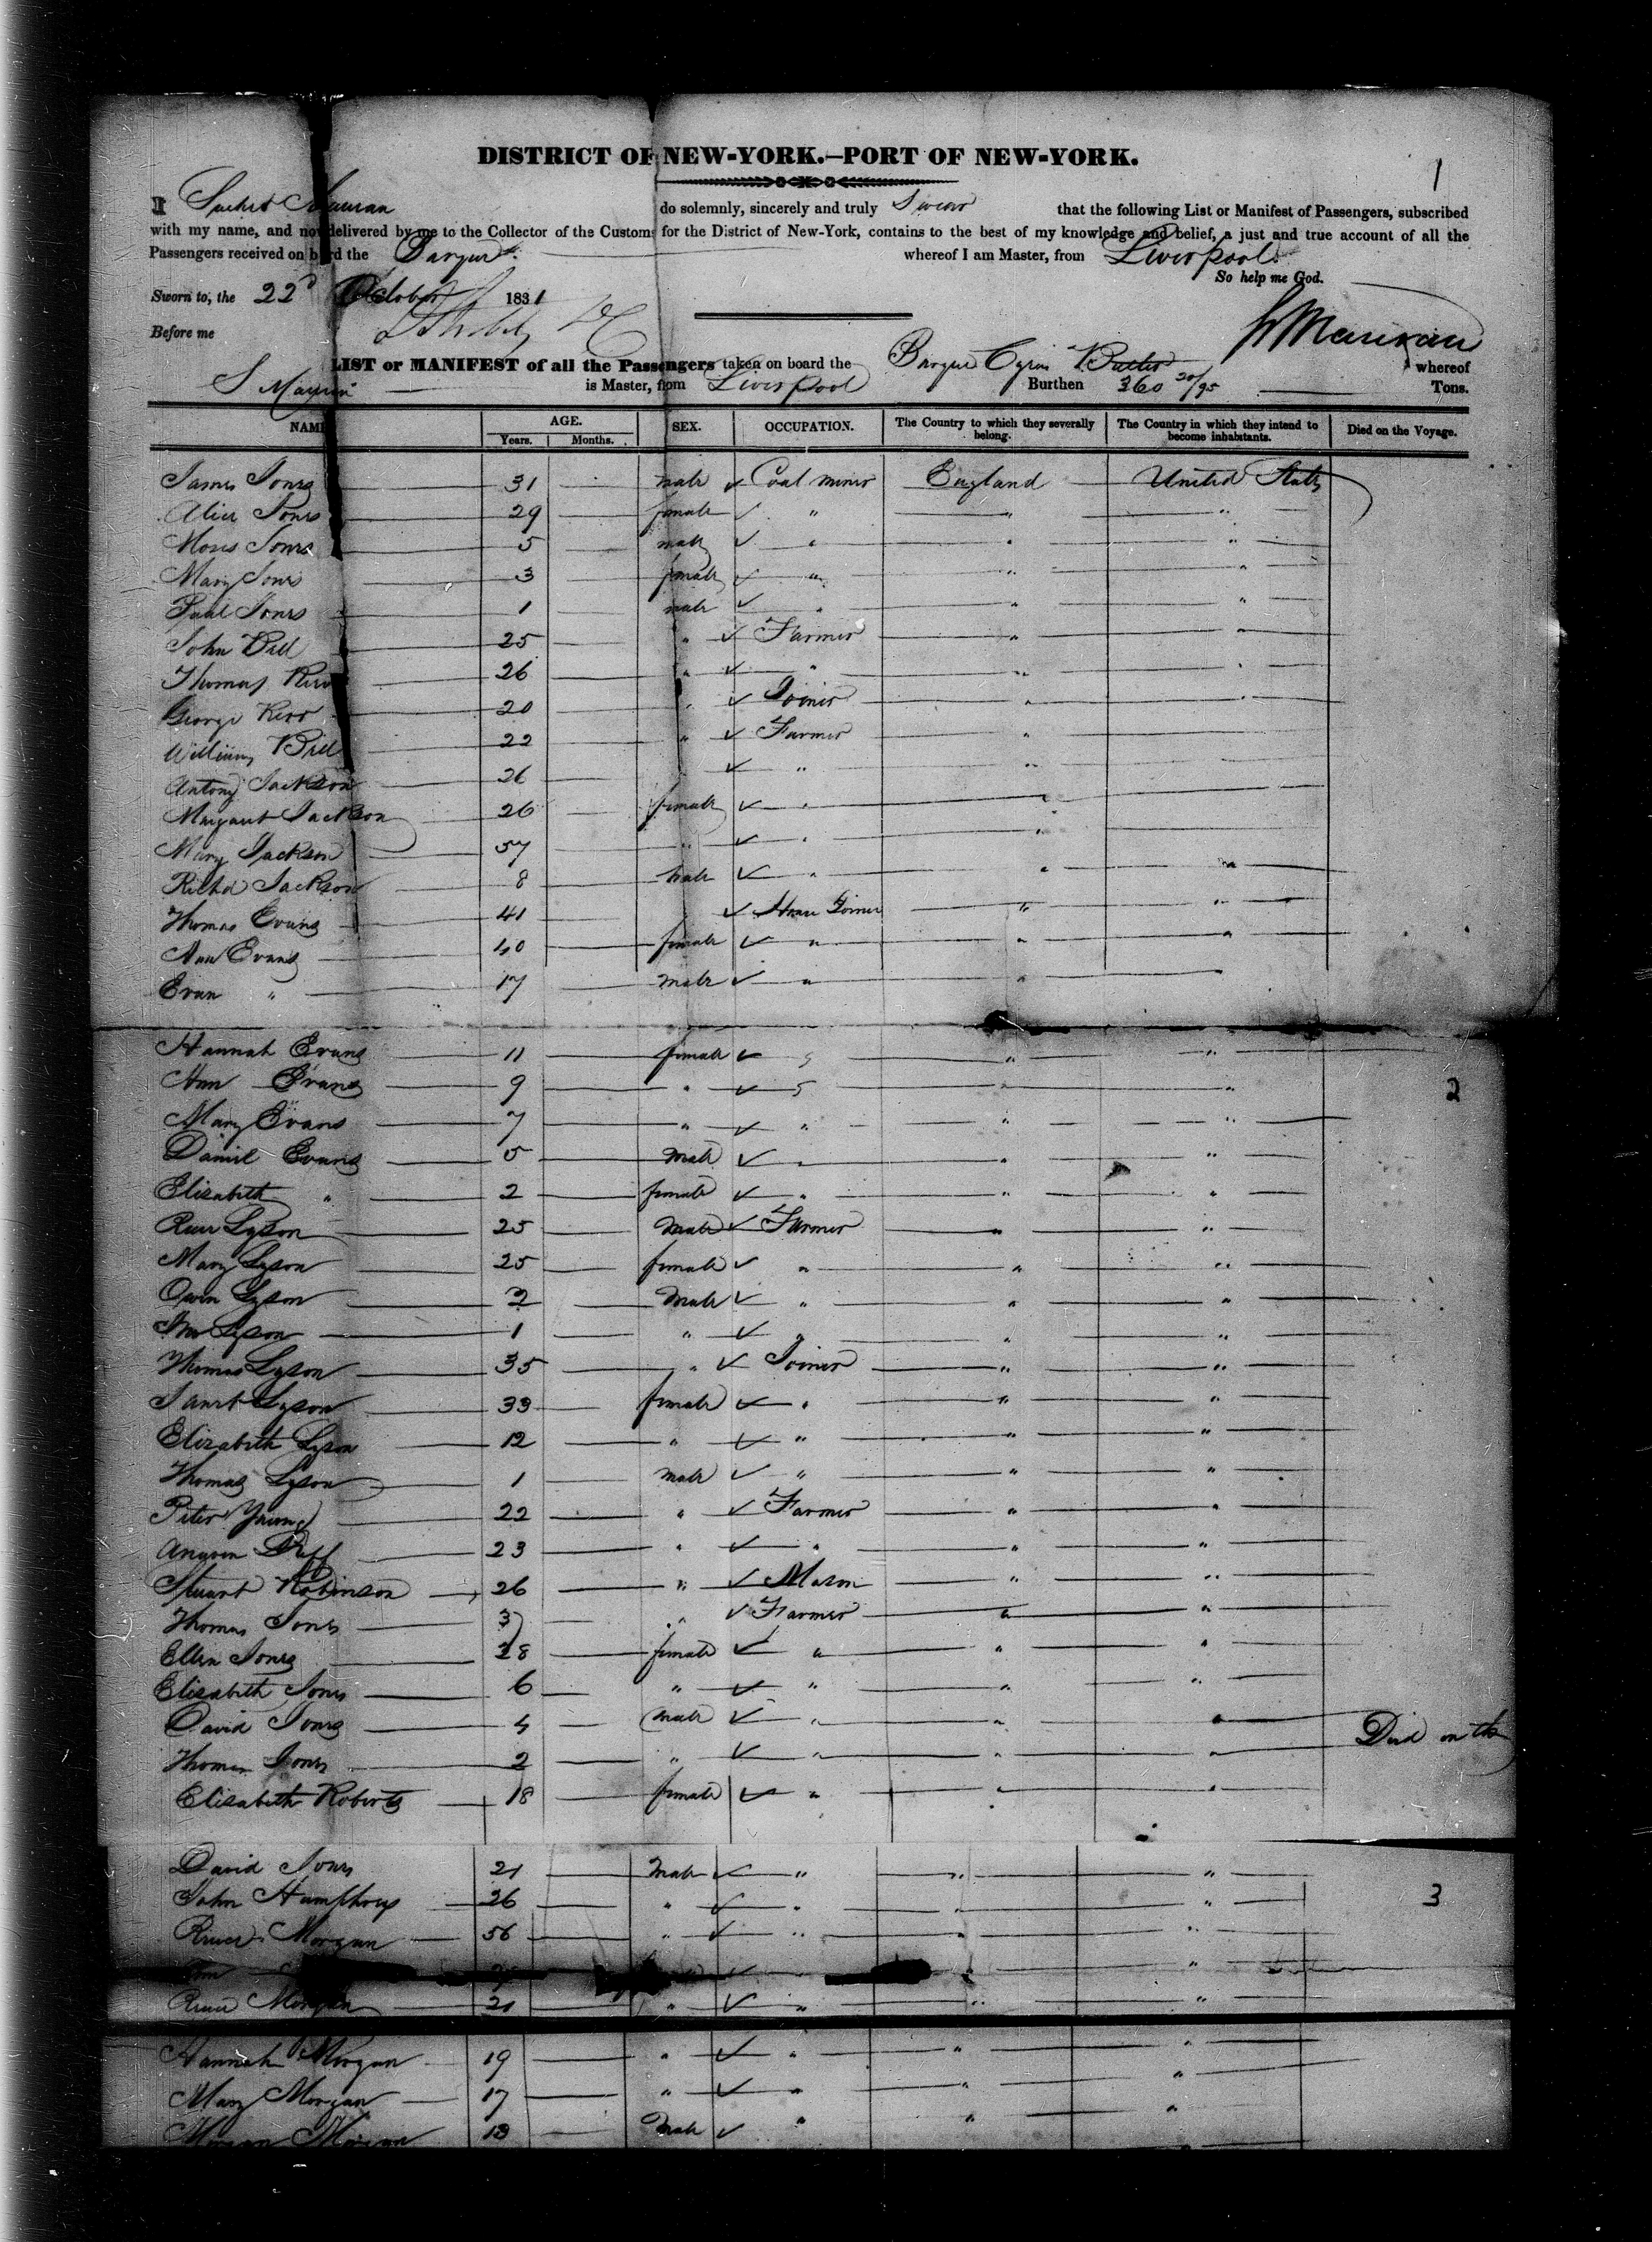 DISTRICT OF NEW-YORK.—PORT OF NEW-YORK.
1
I Suchet Mauran do solemnly, sincerely and truly Swear that the following List or Manifest of Passengers, subscribed
with my name, and now delivered by me to the Collector of the Customs for the District of New-York, contains to the best of my knowledge and belief, a just and true account of all the
Passengers received on board the Barque whereof I am Master, from Liverpool.
So help me God.
Sworn to, the 22d October 1831
Before me
S Mauran
LIST or MANIFEST of all the Passengers taken on board the Barque Cyrus Butler whereof
S Mauran is Master, from Liverpool Burthen 360 20/95 Tons.
NAME AGE. SEX. OCCUPATION. The Country to which they severally belong. The Country in which they intend to become inhabitants. Died on the Voyage.
Years. Months.
James Jones 31 male ✓ Coal miner England United States
Alice Jones 29 female ✓ " " "
Moses Jones 5 male ✓ " " "
Mary Jones 3 female ✓ " " "
Paul Jones 1 male ✓ " " "
John Bell 25 " ✓ Farmer " "
Thomas 26 " ✓ " " "
George Kerr 20 " ✓ Joiner " "
William Bell 22 " ✓ Farmer "
Antony Jackson 26 ✓ " "
Margaret Jackson 26 female ✓ " "
Mary Jackson 57 " ✓ " "
Richd Jackson 8 male ✓ " " "
Thomas Evans 41 ✓ House Joiner " "
Ann Evans 40 female ✓ " " "
Evan " 17 male ✓ " " "
Hannah Evans 11 female ✓ " " "
2
Ann Evans 9 " ✓ " " "
Mary Evans 7 " ✓ " " "
Daniel Evans 5 Male ✓ " " "
Elizabeth " 2 female ✓ " " "
Rees Lyson 25 Male ✓ Farmer " "
Mary Lyson 25 female ✓ " " "
Owen Lyson 2 Male ✓ " " "
Jno Lyson 1 " ✓ " " "
Thomas Lyson 35 " ✓ Joiner " "
Janet Lyson 33 female ✓ " " "
Elizabeth Lyson 12 " ✓ " " "
Thomas Lyson 1 male ✓ " " "
Peter Young 22 " ✓ Farmer " "
Duff 23 " ✓ " " "
Stuart Robinson 26 " ✓ Mason " "
Thomas Jones 37 " ✓ Farmer " "
Ellen Jones 28 female ✓ " " "
Elizabeth Jones 6 " ✓ " " "
David Jones 4 male ✓ " " "
Died on the
Thomas Jones 2 " ✓ " " "
Elizabeth Roberts 18 female ✓ " " "
David Jones 21 Male ✓ " " "
3
John Humphreys 26 " ✓ " " "
Morgan 56 " ✓ " " "
Ann ✓ " "
Morgan 21 " ✓ " " "
Hannah Morgan 19 " ✓ " " "
Mary Morgan 17 " ✓ " " "
Morgan Morgan 13 Male ✓ " " "